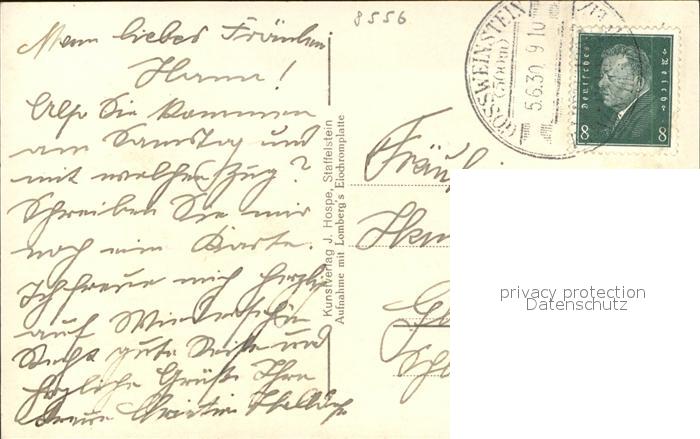 8556
Mein liebes Fräulein
Hanna!
Also Sie kommen
am Samstag und
mit welchen Zug?
Schreiben Sie mir
noch eine Karte.
Ich freue mich herzlich
auf Wiedersehn
Recht gute Reise und
herzliche Grüße Ihre
treue Christin
Kunstverlag J. Hospe, Staffelstein
Aufnahme mit Lomberg's Elochromplatte
GÖSSWEINSTEIN
(500m)
5.6.30 9-10
Deutsches Reich
8 8
Fräul
privacy protection
Datenschutz